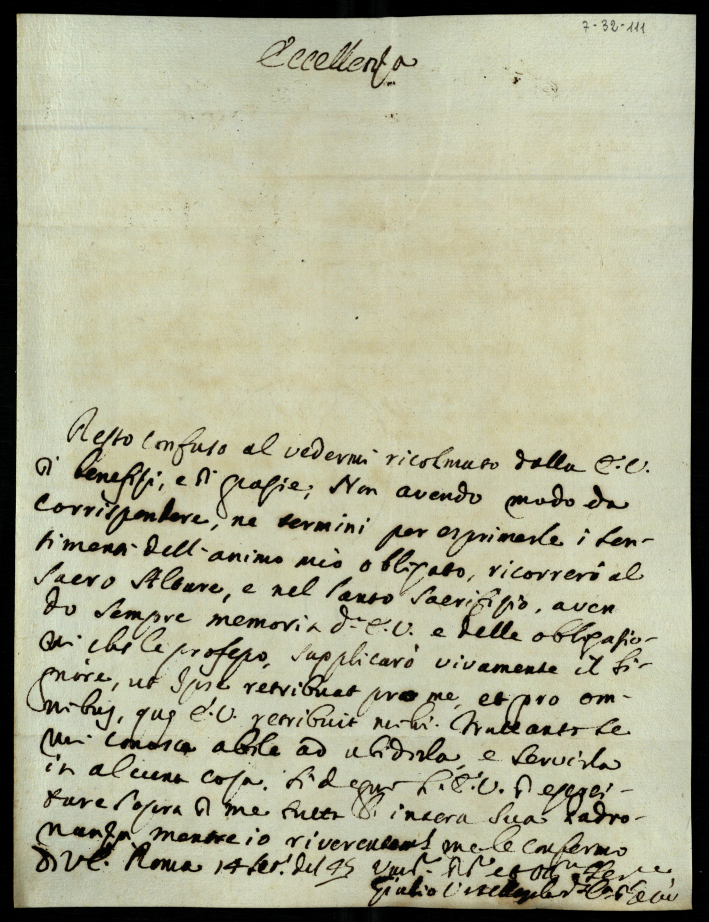 7-32-111
Eccellenza
Resto confuso al vedermi ricolmato dalla E.V.
di benefizj, e di grazie; Non avendo modo da
corrispondere, ne termini per esprimerle i sen-
timenti dell'animo mio obligato, ricorrerò al
Sacro Altare, e nel Santo Sacrifizio, aven
do sempre memoria di E.V. e delle obligazio-
ni che le professo, supplicarò vivamente il Si-
gnore, ut Ipse retribuat pro me, et pro om-
nibus, quę E.V. retribuit mihi. Frattanto se
mi conosce abile ad ubidirla, e servirla
in alcuna cosa. Si degni L'E.V. di eserci-
tare sopra di me tutta l'intera sua Padro-
nanza, mentre io riverentemente me le confermo
Di V.E. Roma 14 del 45
Giulio